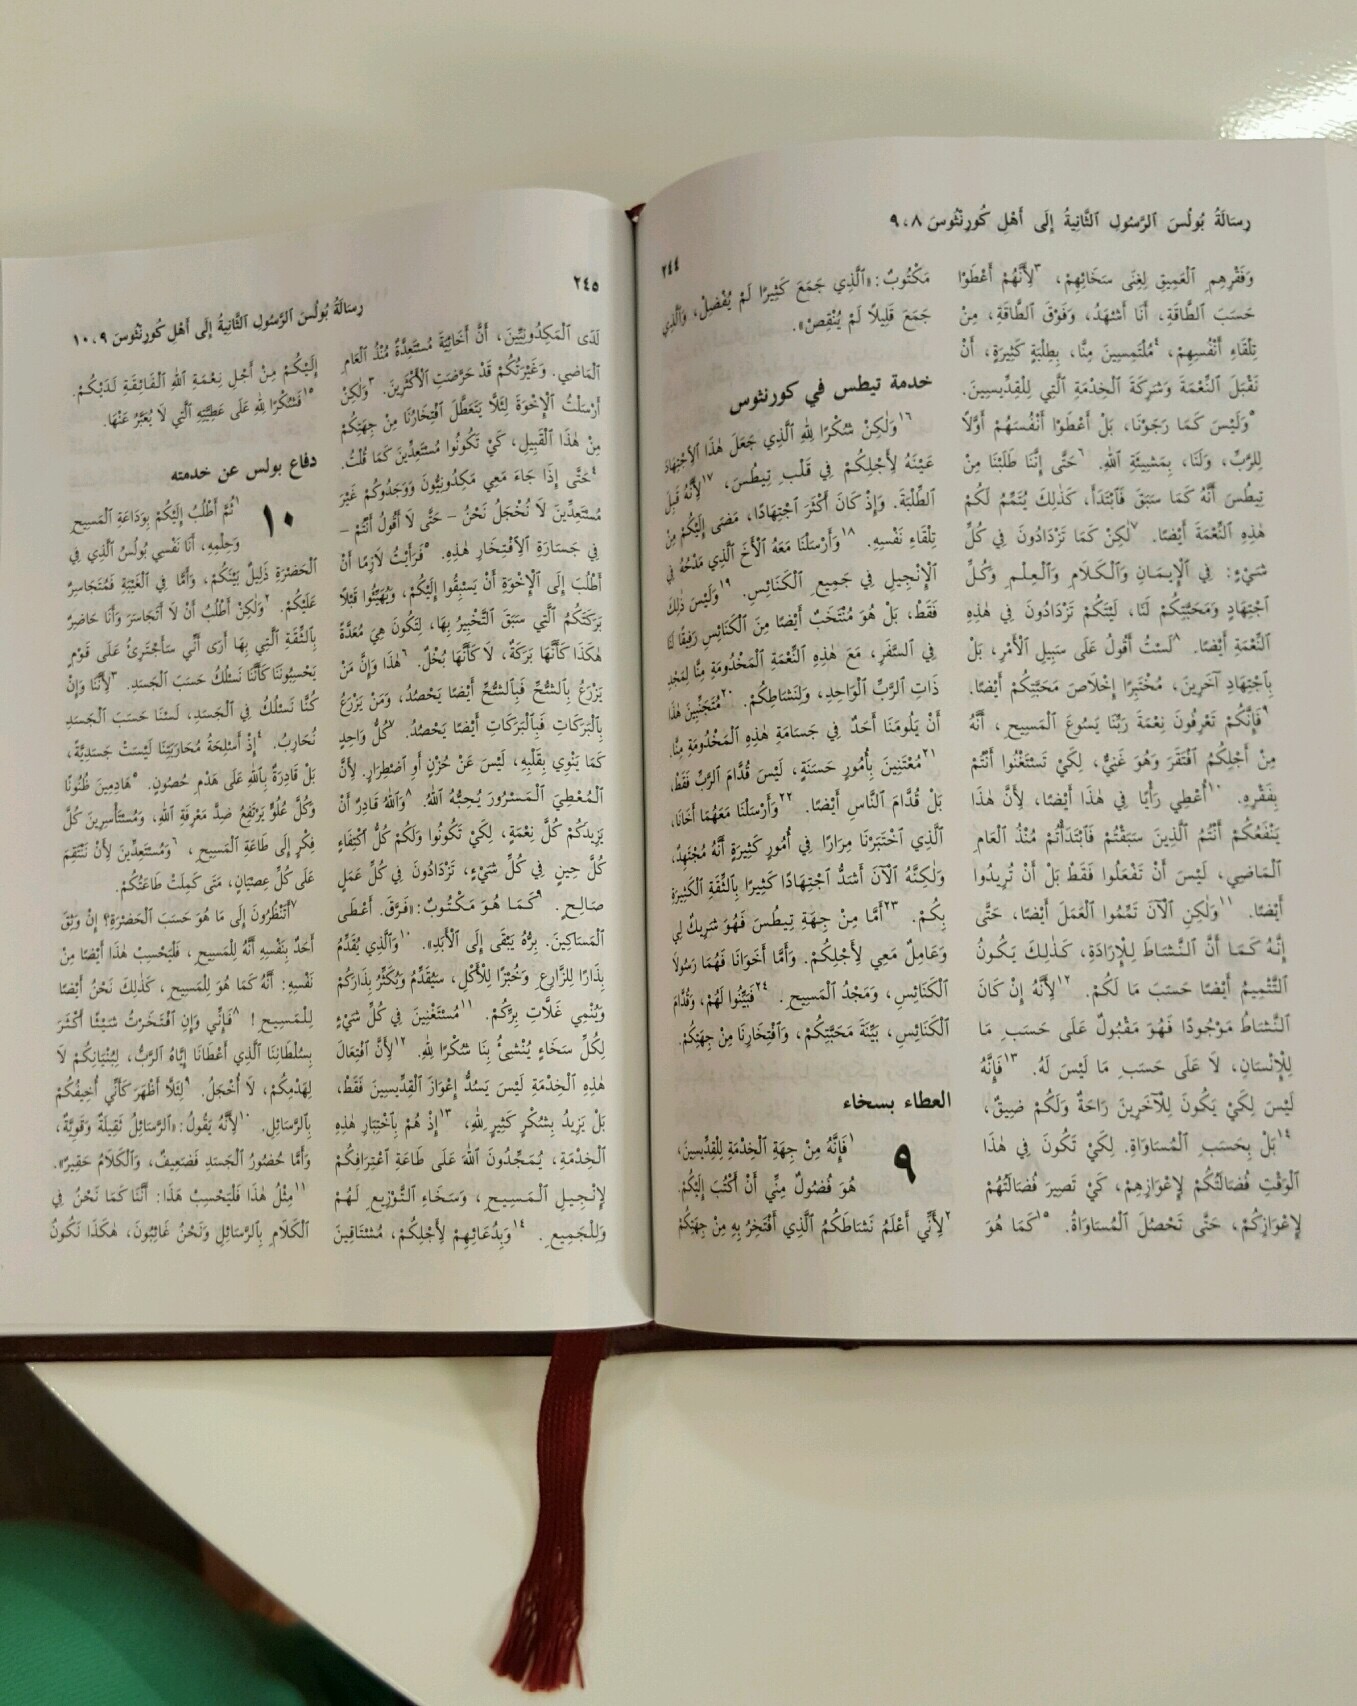 رِسَالَةُ بُولُسَ ٱلرَّسُولِ ٱلثَّانِيةُ إِلَى أَهْلِ كُورِنْثُوسَ ٨، ٩
٢٤٤
وَفَقْرِهِمِ ٱلْعَمِيقِ لِغِنَى سَخَائِهِمْ، ٣لِأَنَّهُمْ أَعْطَوْا
حَسَبَ ٱلطَّاقَةِ، أَنَا أَشْهَدُ، وَفَوْقَ ٱلطَّاقَةِ، مِنْ
تِلْقَاءِ أَنْفُسِهِمْ، ٤مُلْتَمِسِينَ مِنَّا، بِطِلْبَةٍ كَثِيرَةٍ، أَنْ
نَقْبَلَ ٱلنِّعْمَةَ وَشَرِكَةَ ٱلْخِدْمَةِ ٱلَّتِي لِلْقِدِّيسِينَ.
٥وَلَيْسَ كَمَا رَجَوْنَا، بَلْ أَعْطَوْا أَنْفُسَهُمْ أَوَّلًا
لِلرَّبِّ، وَلَنَا، بِمَشِيئَةِ ٱللهِ. ٦حَتَّى إِنَّنَا طَلَبْنَا مِنْ
تِيطُسَ أَنَّهُ كَمَا سَبَقَ فَٱبْتَدَأَ، كَذَلِكَ يُتَمِّمُ لَكُمْ
هٰذِهِ ٱلنِّعْمَةَ أَيْضًا. ٧لٰكِنْ كَمَا تَزْدَادُونَ فِي كُلِّ
شَيْءٍ: فِي ٱلْإِيمَانِ وَٱلْكَلَامِ وَٱلْعِلْمِ وَكُلِّ
ٱجْتِهَادٍ وَمَحَبَّتِكُمْ لَنَا، لَيْتَكُمْ تَزْدَادُونَ فِي هٰذِهِ
ٱلنِّعْمَةِ أَيْضًا. ٨لَسْتُ أَقُولُ عَلَى سَبِيلِ ٱلْأَمْرِ، بَلْ
بِٱجْتِهَادِ آخَرِينَ، مُخْتَبِرًا إِخْلَاصَ مَحَبَّتِكُمْ أَيْضًا.
٩فَإِنَّكُمْ تَعْرِفُونَ نِعْمَةَ رَبِّنَا يَسُوعَ ٱلْمَسِيحِ، أَنَّهُ
مِنْ أَجْلِكُمُ ٱفْتَقَرَ وَهُوَ غَنِيٌّ، لِكَيْ تَسْتَغْنُوا أَنْتُمْ
بِفَقْرِهِ. ١٠أُعْطِي رَأْيًا فِي هٰذَا أَيْضًا، لِأَنَّ هٰذَا
يَنْفَعُكُمْ أَنْتُمُ ٱلَّذِينَ سَبَقْتُمْ فَٱبْتَدَأْتُمْ مُنْذُ ٱلْعَامِ
ٱلْمَاضِي، لَيْسَ أَنْ تَفْعَلُوا فَقَطْ بَلْ أَنْ تُرِيدُوا
أَيْضًا. ١١وَلٰكِنِ ٱلْآنَ تَمِّمُوا ٱلْعَمَلَ أَيْضًا، حَتَّى
إِنَّهُ كَمَا أَنَّ ٱلنَّشَاطَ لِلْإِرَادَةِ، كَذٰلِكَ يَكُونُ
ٱلتَّتْمِيمُ أَيْضًا حَسَبَ مَا لَكُمْ. ١٢لِأَنَّهُ إِنْ كَانَ
ٱلنَّشَاطُ مَوْجُودًا فَهُوَ مَقْبُولٌ عَلَى حَسَبِ مَا
لِلْإِنْسَانِ، لَا عَلَى حَسَبِ مَا لَيْسَ لَهُ. ١٣فَإِنَّهُ
لَيْسَ لِكَيْ يَكُونَ لِلْآخَرِينَ رَاحَةٌ وَلَكُمْ ضِيقٌ،
١٤بَلْ بِحَسَبِ ٱلْمُسَاوَاةِ. لِكَيْ تَكُونَ فِي هٰذَا
ٱلْوَقْتِ فُضَالَتُكُمْ لِإِعْوَازِهِمْ، كَيْ تَصِيرَ فُضَالَتُهُمْ
لِإِعْوَازِكُمْ، حَتَّى تَحْصُلَ ٱلْمُسَاوَاةُ. ١٥كَمَا هُوَ
مَكْتُوبٌ: «ٱلَّذِي جَمَعَ كَثِيرًا لَمْ يُفْضِلْ، وَٱلَّذِي
جَمَعَ قَلِيلًا لَمْ يُنْقِصْ».
خدمة تيطس في كورنثوس
١٦وَلٰكِنْ شُكْرًا لِلهِ ٱلَّذِي جَعَلَ هٰذَا ٱلِٱجْتِهَادَ
عَيْنَهُ لِأَجْلِكُمْ فِي قَلْبِ تِيطُسَ، ١٧لِأَنَّهُ قَبِلَ
ٱلطِّلْبَةَ. وَإِذْ كَانَ أَكْثَرَ ٱجْتِهَادًا، مَضَى إِلَيْكُمْ مِنْ
تِلْقَاءِ نَفْسِهِ. ١٨وَأَرْسَلْنَا مَعَهُ ٱلْأَخَ ٱلَّذِي مَدْحُهُ فِي
ٱلْإِنْجِيلِ فِي جَمِيعِ ٱلْكَنَائِسِ. ١٩وَلَيْسَ ذٰلِكَ
فَقَطْ، بَلْ هُوَ مُنْتَخَبٌ أَيْضًا مِنَ ٱلْكَنَائِسِ رَفِيقًا لَنَا
فِي ٱلسَّفَرِ، مَعَ هٰذِهِ ٱلنِّعْمَةِ ٱلْمَخْدُومَةِ مِنَّا لِمَجْدِ
ذَاتِ ٱلرَّبِّ ٱلْوَاحِدِ، وَلِنَشَاطِكُمْ. ٢٠مُتَجَنِّبِينَ هٰذَا
أَنْ يَلُومَنَا أَحَدٌ فِي جَسَامَةِ هٰذِهِ ٱلْمَخْدُومَةِ مِنَّا.
٢١مُعْتَنِينَ بِأُمُورٍ حَسَنَةٍ، لَيْسَ قُدَّامَ ٱلرَّبِّ فَقَطْ،
بَلْ قُدَّامَ ٱلنَّاسِ أَيْضًا. ٢٢وَأَرْسَلْنَا مَعَهُمَا أَخَانَا،
ٱلَّذِي ٱخْتَبَرْنَا مِرَارًا فِي أُمُورٍ كَثِيرَةٍ أَنَّهُ مُجْتَهِدٌ،
وَلٰكِنَّهُ ٱلْآنَ أَشَدُّ ٱجْتِهَادًا كَثِيرًا بِٱلثِّقَةِ ٱلْكَثِيرَةِ
بِكُمْ. ٢٣أَمَّا مِنْ جِهَةِ تِيطُسَ فَهُوَ شَرِيكٌ لِي
وَعَامِلٌ مَعِي لِأَجْلِكُمْ. وَأَمَّا أَخَوَانَا فَهُمَا رَسُولَا
ٱلْكَنَائِسِ، وَمَجْدُ ٱلْمَسِيحِ. ٢٤فَبَيِّنُوا لَهُمْ، وَقُدَّامَ
ٱلْكَنَائِسِ، بَيِّنَةَ مَحَبَّتِكُمْ، وَٱفْتِخَارِنَا مِنْ جِهَتِكُمْ.
العطاء بسخاء
٩ ١فَإِنَّهُ مِنْ جِهَةِ ٱلْخِدْمَةِ لِلْقِدِّيسِينَ،
هُوَ فُضُولٌ مِنِّي أَنْ أَكْتُبَ إِلَيْكُمْ.
٢لِأَنِّي أَعْلَمُ نَشَاطَكُمُ ٱلَّذِي أَفْتَخِرُ بِهِ مِنْ جِهَتِكُمْ
٢٤٥
رِسَالَةُ بُولُسَ ٱلرَّسُولِ ٱلثَّانِيةُ إِلَى أَهْلِ كُورِنْثُوسَ ٩، ١٠
لَدَى ٱلْمَكِدُونِيِّينَ، أَنَّ أَخَائِيَةَ مُسْتَعِدَّةٌ مُنْذُ ٱلْعَامِ
ٱلْمَاضِي. وَغَيْرَتُكُمْ قَدْ حَرَّضَتِ ٱلْأَكْثَرِينَ. ٣وَلٰكِنْ
أَرْسَلْتُ ٱلْإِخْوَةَ لِئَلَّا يَتَعَطَّلَ ٱفْتِخَارُنَا مِنْ جِهَتِكُمْ
مِنْ هٰذَا ٱلْقَبِيلِ، كَيْ تَكُونُوا مُسْتَعِدِّينَ كَمَا قُلْتُ.
٤حَتَّى إِذَا جَاءَ مَعِي مَكِدُونِيُّونَ وَوَجَدُوكُمْ غَيْرَ
مُسْتَعِدِّينَ لَا نُخْجَلُ نَحْنُ – حَتَّى لَا أَقُولُ أَنْتُمْ –
فِي جَسَارَةِ ٱلِٱفْتِخَارِ هٰذِهِ. ٥فَرَأَيْتُ لَازِمًا أَنْ
أَطْلُبَ إِلَى ٱلْإِخْوَةِ أَنْ يَسْبِقُوا إِلَيْكُمْ، وَيُهَيِّئُوا قَبْلًا
بَرَكَتَكُمُ ٱلَّتِي سَبَقَ ٱلتَّخْبِيرُ بِهَا، لِتَكُونَ هِيَ مُعَدَّةً
هٰكَذَا كَأَنَّهَا بَرَكَةٌ، لَا كَأَنَّهَا بُخْلٌ. ٦هٰذَا وَإِنَّ مَنْ
يَزْرَعُ بِٱلشُّحِّ فَبِٱلشُّحِّ أَيْضًا يَحْصُدُ، وَمَنْ يَزْرَعُ
بِٱلْبَرَكَاتِ فَبِٱلْبَرَكَاتِ أَيْضًا يَحْصُدُ. ٧كُلُّ وَاحِدٍ
كَمَا يَنْوِي بِقَلْبِهِ، لَيْسَ عَنْ حُزْنٍ أَوِ ٱضْطِرَارٍ. لِأَنَّ
ٱلْمُعْطِيَ ٱلْمَسْرُورَ يُحِبُّهُ ٱللهُ. ٨وَٱللهُ قَادِرٌ أَنْ
يَزِيدَكُمْ كُلَّ نِعْمَةٍ، لِكَيْ تَكُونُوا وَلَكُمْ كُلُّ ٱكْتِفَاءٍ
كُلَّ حِينٍ فِي كُلِّ شَيْءٍ، تَزْدَادُونَ فِي كُلِّ عَمَلٍ
صَالِحٍ. ٩كَمَا هُوَ مَكْتُوبٌ: «فَرَّقَ. أَعْطَى
ٱلْمَسَاكِينَ. بِرُّهُ يَبْقَى إِلَى ٱلْأَبَدِ». ١٠وَٱلَّذِي يُقَدِّمُ
بِذَارًا لِلزَّارِعِ وَخُبْزًا لِلْأَكْلِ، سَيُقَدِّمُ وَيُكَثِّرُ بِذَارَكُمْ
وَيُنْمِي غَلَّاتِ بِرِّكُمْ. ١١مُسْتَغْنِينَ فِي كُلِّ شَيْءٍ
لِكُلِّ سَخَاءٍ يُنْشِئُ بِنَا شُكْرًا لِلهِ. ١٢لِأَنَّ ٱفْتِعَالَ
هٰذِهِ ٱلْخِدْمَةِ لَيْسَ يَسُدُّ إِعْوَازَ ٱلْقِدِّيسِينَ فَقَطْ،
بَلْ يَزِيدُ بِشُكْرٍ كَثِيرٍ لِلهِ، ١٣إِذْ هُمْ بِٱخْتِبَارِ هٰذِهِ
ٱلْخِدْمَةِ، يُمَجِّدُونَ ٱللهَ عَلَى طَاعَةِ ٱعْتِرَافِكُمْ
لِإِنْجِيلِ ٱلْمَسِيحِ، وَسَخَاءِ ٱلتَّوْزِيعِ لَهُمْ
وَلِلْجَمِيعِ. ١٤وَبِدُعَائِهِمْ لِأَجْلِكُمْ، مُشْتَاقِينَ
إِلَيْكُمْ مِنْ أَجْلِ نِعْمَةِ ٱللهِ ٱلْفَائِقَةِ لَدَيْكُمْ.
١٥فَشُكْرًا لِلهِ عَلَى عَطِيَّتِهِ ٱلَّتِي لَا يُعَبَّرُ عَنْهَا.
دفاع بولس عن خدمته
١٠ ١ثُمَّ أَطْلُبُ إِلَيْكُمْ بِوَدَاعَةِ ٱلْمَسِيحِ
وَحِلْمِهِ، أَنَا نَفْسِي بُولُسُ ٱلَّذِي فِي
ٱلْحَضْرَةِ ذَلِيلٌ بَيْنَكُمْ، وَأَمَّا فِي ٱلْغَيْبَةِ فَمُتَجَاسِرٌ
عَلَيْكُمْ. ٢وَلٰكِنْ أَطْلُبُ أَنْ لَا أَتَجَاسَرَ وَأَنَا حَاضِرٌ
بِٱلثِّقَةِ ٱلَّتِي بِهَا أَرَى أَنِّي سَأَجْتَرِئُ عَلَى قَوْمٍ
يَحْسِبُونَنَا كَأَنَّنَا نَسْلُكُ حَسَبَ ٱلْجَسَدِ. ٣لِأَنَّنَا وَإِنْ
كُنَّا نَسْلُكُ فِي ٱلْجَسَدِ، لَسْنَا حَسَبَ ٱلْجَسَدِ
نُحَارِبُ. ٤إِذْ أَسْلِحَةُ مُحَارَبَتِنَا لَيْسَتْ جَسَدِيَّةً،
بَلْ قَادِرَةٌ بِٱللهِ عَلَى هَدْمِ حُصُونٍ. ٥هَادِمِينَ ظُنُونًا
وَكُلَّ عُلْوٍ يَرْتَفِعُ ضِدَّ مَعْرِفَةِ ٱللهِ، وَمُسْتَأْسِرِينَ كُلَّ
فِكْرٍ إِلَى طَاعَةِ ٱلْمَسِيحِ، ٦وَمُسْتَعِدِّينَ لِأَنْ نَنْتَقِمَ
عَلَى كُلِّ عِصْيَانٍ، مَتَى كَمِلَتْ طَاعَتُكُمْ.
٧أَتَنْظُرُونَ إِلَى مَا هُوَ حَسَبَ ٱلْحَضْرَةِ؟ إِنْ وَثِقَ
أَحَدٌ بِنَفْسِهِ أَنَّهُ لِلْمَسِيحِ، فَلْيَحْسِبْ هٰذَا أَيْضًا مِنْ
نَفْسِهِ: أَنَّهُ كَمَا هُوَ لِلْمَسِيحِ، كَذٰلِكَ نَحْنُ أَيْضًا
لِلْمَسِيحِ! ٨فَإِنِّي وَإِنِ ٱفْتَخَرْتُ شَيْئًا أَكْثَرَ
بِسُلْطَانِنَا ٱلَّذِي أَعْطَانَا إِيَّاهُ ٱلرَّبُّ، لِبُنْيَانِكُمْ لَا
لِهَدْمِكُمْ، لَا أُخْجَلُ. ٩لِئَلَّا أَظْهَرَ كَأَنِّي أُخِيفُكُمْ
بِٱلرَّسَائِلِ. ١٠لِأَنَّهُ يَقُولُ: «ٱلرَّسَائِلُ ثَقِيلَةٌ وَقَوِيَّةٌ،
وَأَمَّا حُضُورُ ٱلْجَسَدِ فَضَعِيفٌ، وَٱلْكَلَامُ حَقِيرٌ».
١١مِثْلُ هٰذَا فَلْيَحْسِبْ هٰذَا: أَنَّنَا كَمَا نَحْنُ فِي
ٱلْكَلَامِ بِٱلرَّسَائِلِ وَنَحْنُ غَائِبُونَ، هٰكَذَا نَكُونُ